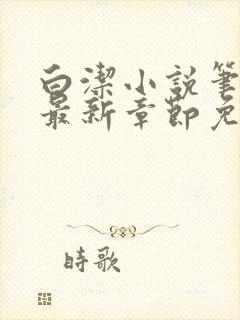 白潔小説筆
最新章節免
時歌